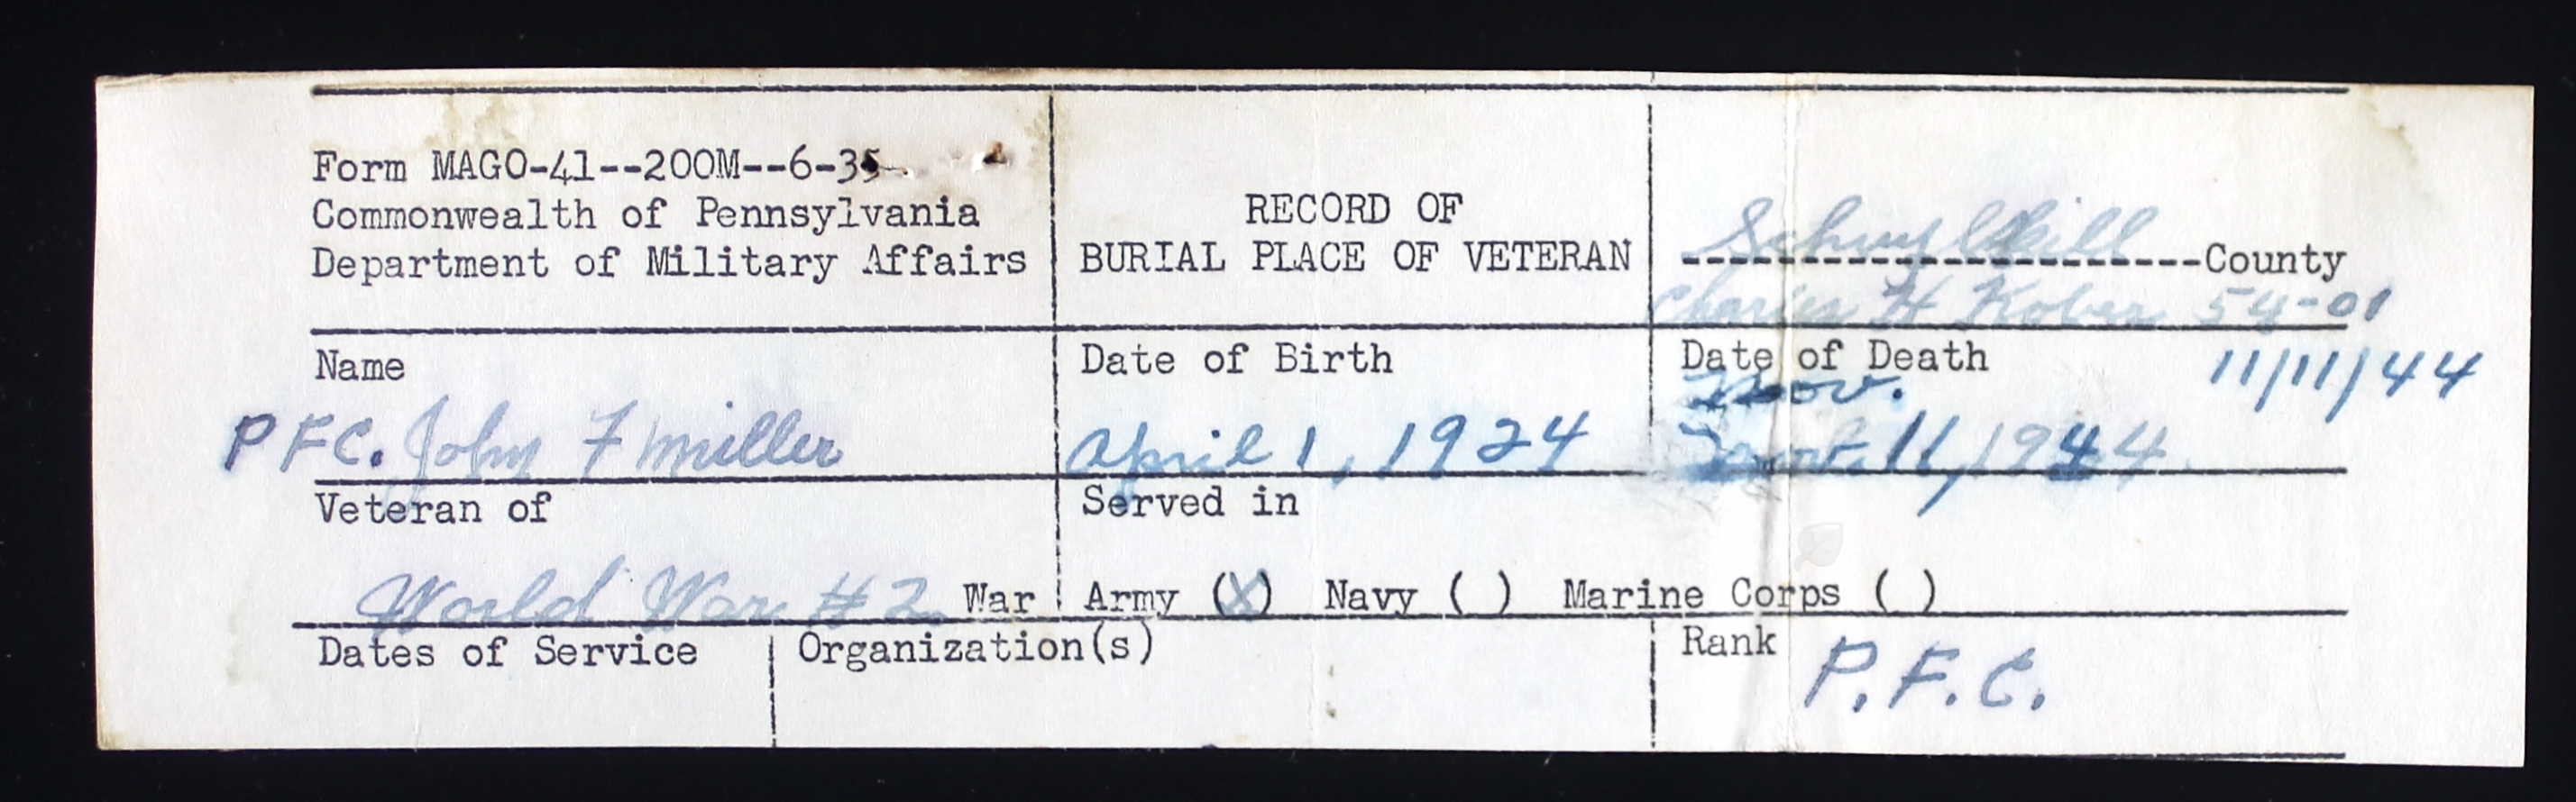 Form MAGO-41--200M--6-35
Commonwealth of Pennsylvania
Department of Military Affairs
RECORD OF
BURIAL PLACE OF VETERAN
Schuylkill County
Charles H Kober 54-01
Name
PFC. John F Miller
Date of Birth
April 1, 1924
Date of Death
11/11/44
Nov.
11, 1944
Veteran of
World War #2 War
Served in
Army (X) Navy ( ) Marine Corps ( )
Dates of Service
Organization(s)
Rank
P.F.C.